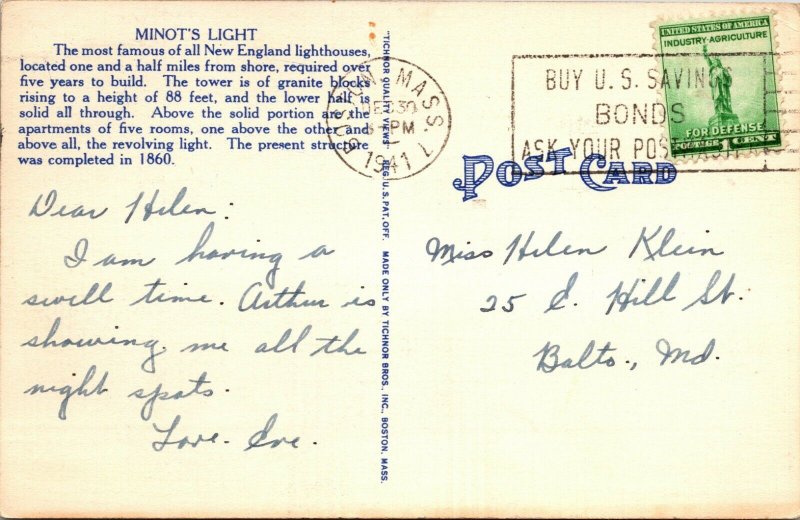 MINOT'S LIGHT
The most famous of all New England lighthouses,
located one and a half miles from shore, required over
five years to build. The tower is of granite blocks
rising to a height of 88 feet, and the lower half is
solid all through. Above the solid portion are the
apartments of five rooms, one above the other and
above all, the revolving light. The present structure
was completed in 1860.
Dear Helen:
I am having a
swell time. Arthur is
showing me all the
night spots.
Love - Eve.
"TICHNOR QUALITY VIEWS" REG. U. S. PAT. OFF. MADE ONLY BY TICHNOR BROS., INC., BOSTON, MASS.
BOSTON, MASS. 1
30
PM
1941
BUY U.S. SAVIN
BONDS
ASK YOUR POS
UNITED STATES OF AMERICA
INDUSTRY-AGRICULTURE
FOR DEFENSE
POSTAGE 1 CENT
POST CARD
Miss Helen Klein
25 E. Hill St.
Balto., Md.